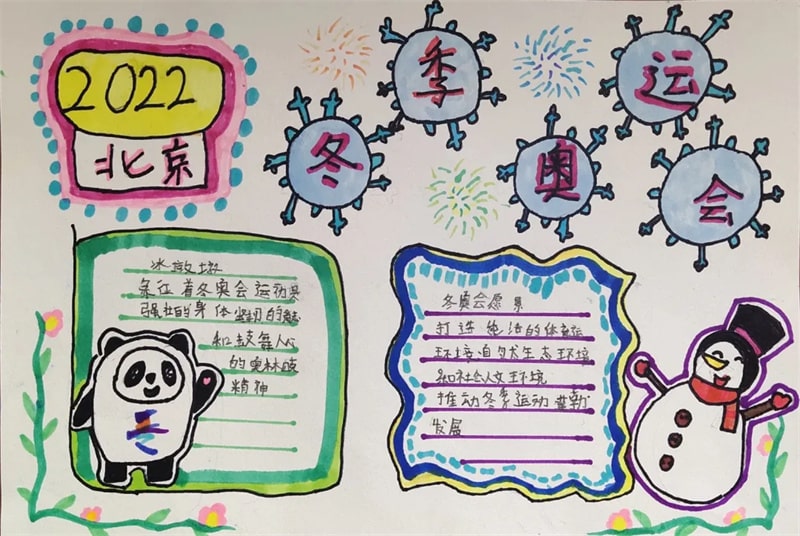 2022
北京
冬季奥运会
冰墩
象征着冬奥会运动员
强壮的身体坚韧的
和鼓舞人心
的奥林
精神
冬奥会愿景
打造纯洁的体育运
环境自然生态环境
和社会人文环境
推动冬季运动
发展